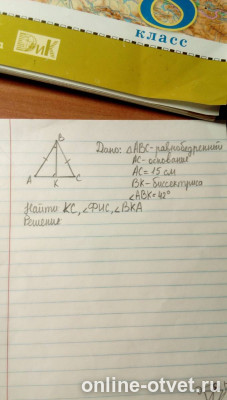 КЛАСС
ДиК
B
A
K
C
Дано: △ABC-равнобедренный
AC-основание
AC=15 см
BK-биссектриса
∠ABK=42°
Найти KC, ∠ФИС, ∠BKA
Решения
online-otvet.ru